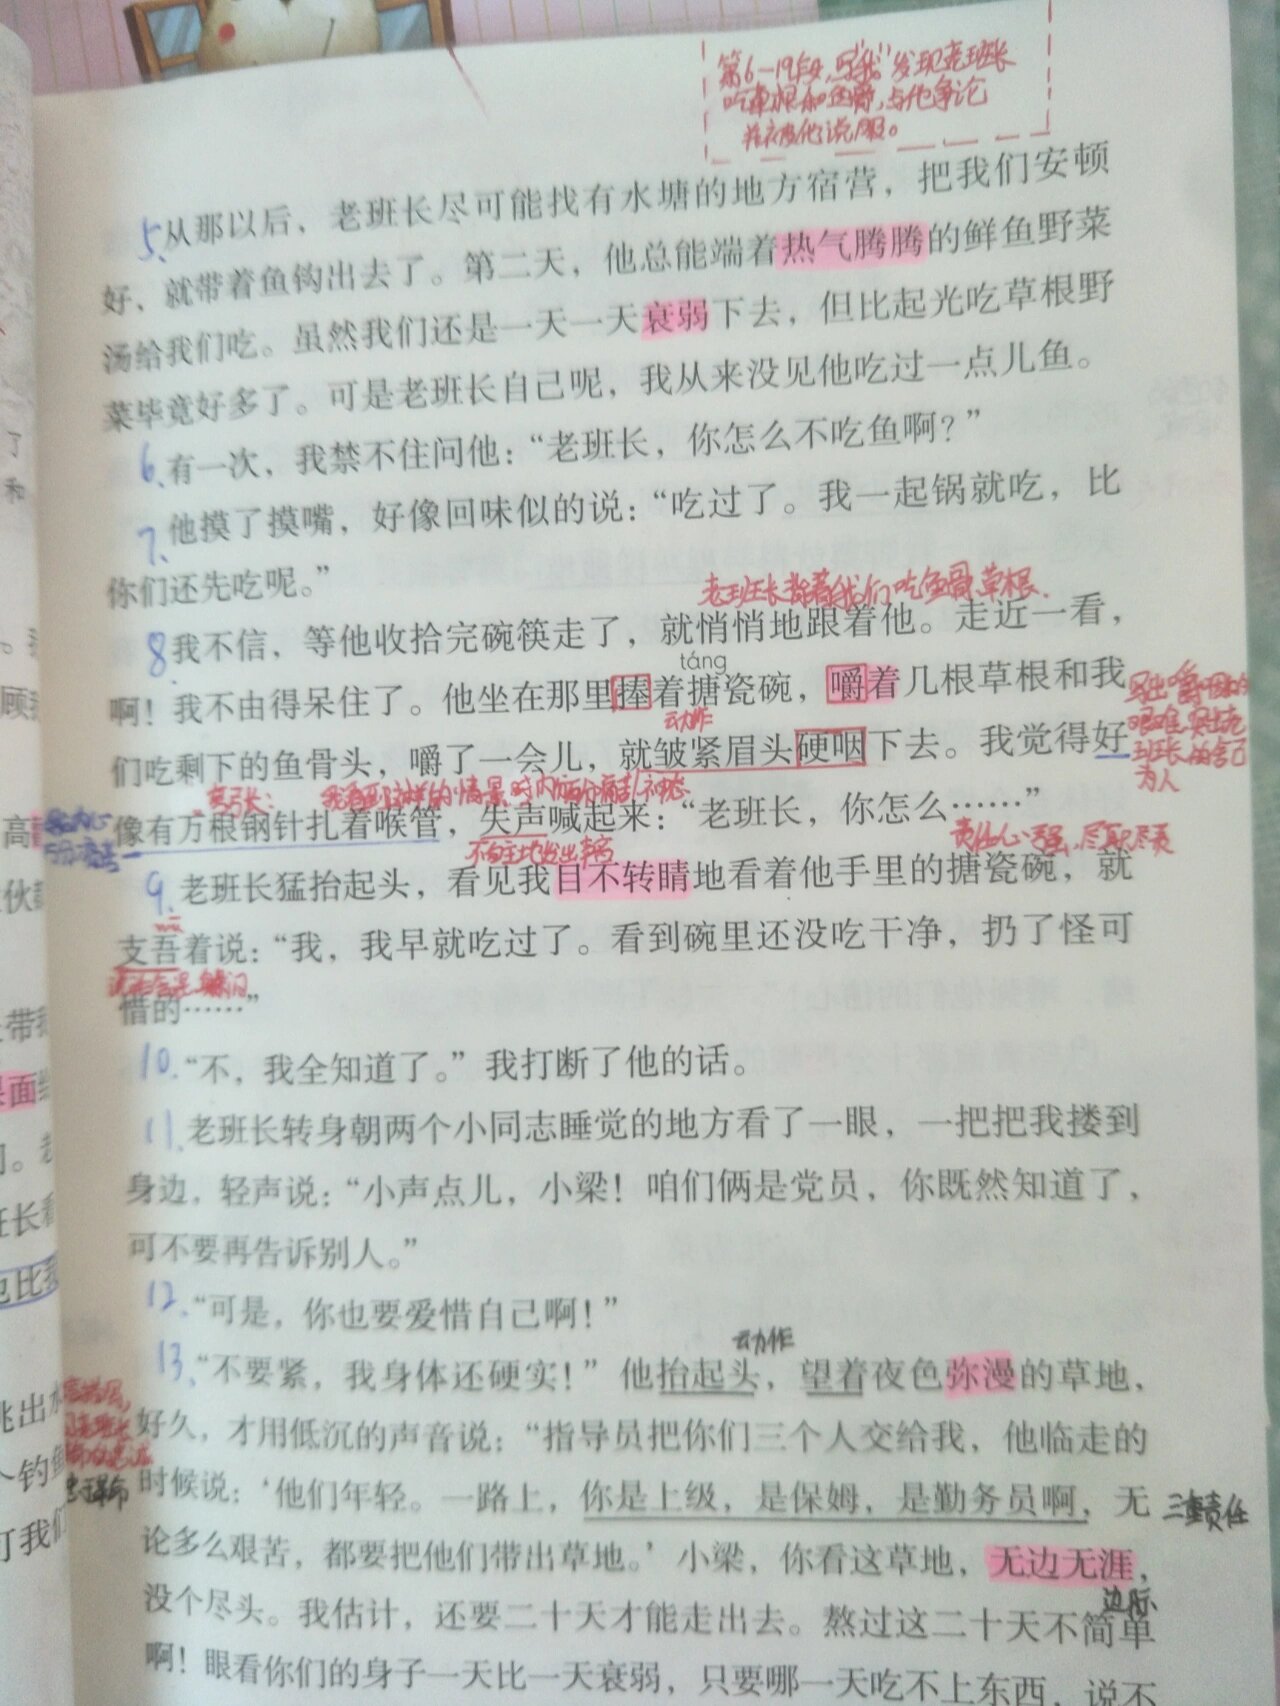 第6—19段,写“我”发现老班长
吃草根和鱼骨,与他争论
并被他说服。
5、从那以后，老班长尽可能找有水塘的地方宿营，把我们安顿
好，就带着鱼钩出去了。第二天，他总能端着热气腾腾的鲜鱼野菜
汤给我们吃。虽然我们还是一天一天衰弱下去，但比起光吃草根野
菜毕竟好多了。可是老班长自己呢，我从来没见他吃过一点儿鱼。
6、有一次，我禁不住问他：“老班长，你怎么不吃鱼啊？”
7、他摸了摸嘴，好像回味似的说：“吃过了。我一起锅就吃，比
你们还先吃呢。”
老班长背着我们吃鱼骨、草根.
8、我不信，等他收拾完碗筷走了，就悄悄地跟着他。走近一看，
táng
啊！我不由得呆住了。他坐在那里捧着搪瓷碗，嚼着几根草根和我
写出嚼咽的
艰难,突出老
班长的舍己
为人
动作
们吃剩下的鱼骨头，嚼了一会儿，就皱紧眉头硬咽下去。我觉得好
夸张：
我看到这样的情景时内心的痛苦神态
像有万根钢针扎着喉管，失声喊起来：“老班长，你怎么……”
不自主地发出声音
责任心强,尽职尽责
9、老班长猛抬起头，看见我目不转睛地看着他手里的搪瓷碗，就
wú
支吾着说：“我，我早就吃过了。看到碗里还没吃干净，扔了怪可
惜的……”
10.“不，我全知道了。”我打断了他的话。
11、老班长转身朝两个小同志睡觉的地方看了一眼，一把把我搂到
身边，轻声说：“小声点儿，小梁！咱们俩是党员，你既然知道了，
可不要再告诉别人。”
12.“可是，你也要爱惜自己啊！”
动作
13.“不要紧，我身体还硬实！”他抬起头，望着夜色弥漫的草地，
好久，才用低沉的声音说：“指导员把你们三个人交给我，他临走的
时候说：‘他们年轻。一路上，你是上级，是保姆，是勤务员啊，无
三重责任
论多么艰苦，都要把他们带出草地。’小梁，你看这草地，无边无涯，
边际
没个尽头。我估计，还要二十天才能走出去。熬过这二十天不简单
啊！眼看你们的身子一天比一天衰弱，只要哪一天吃不上东西，说不